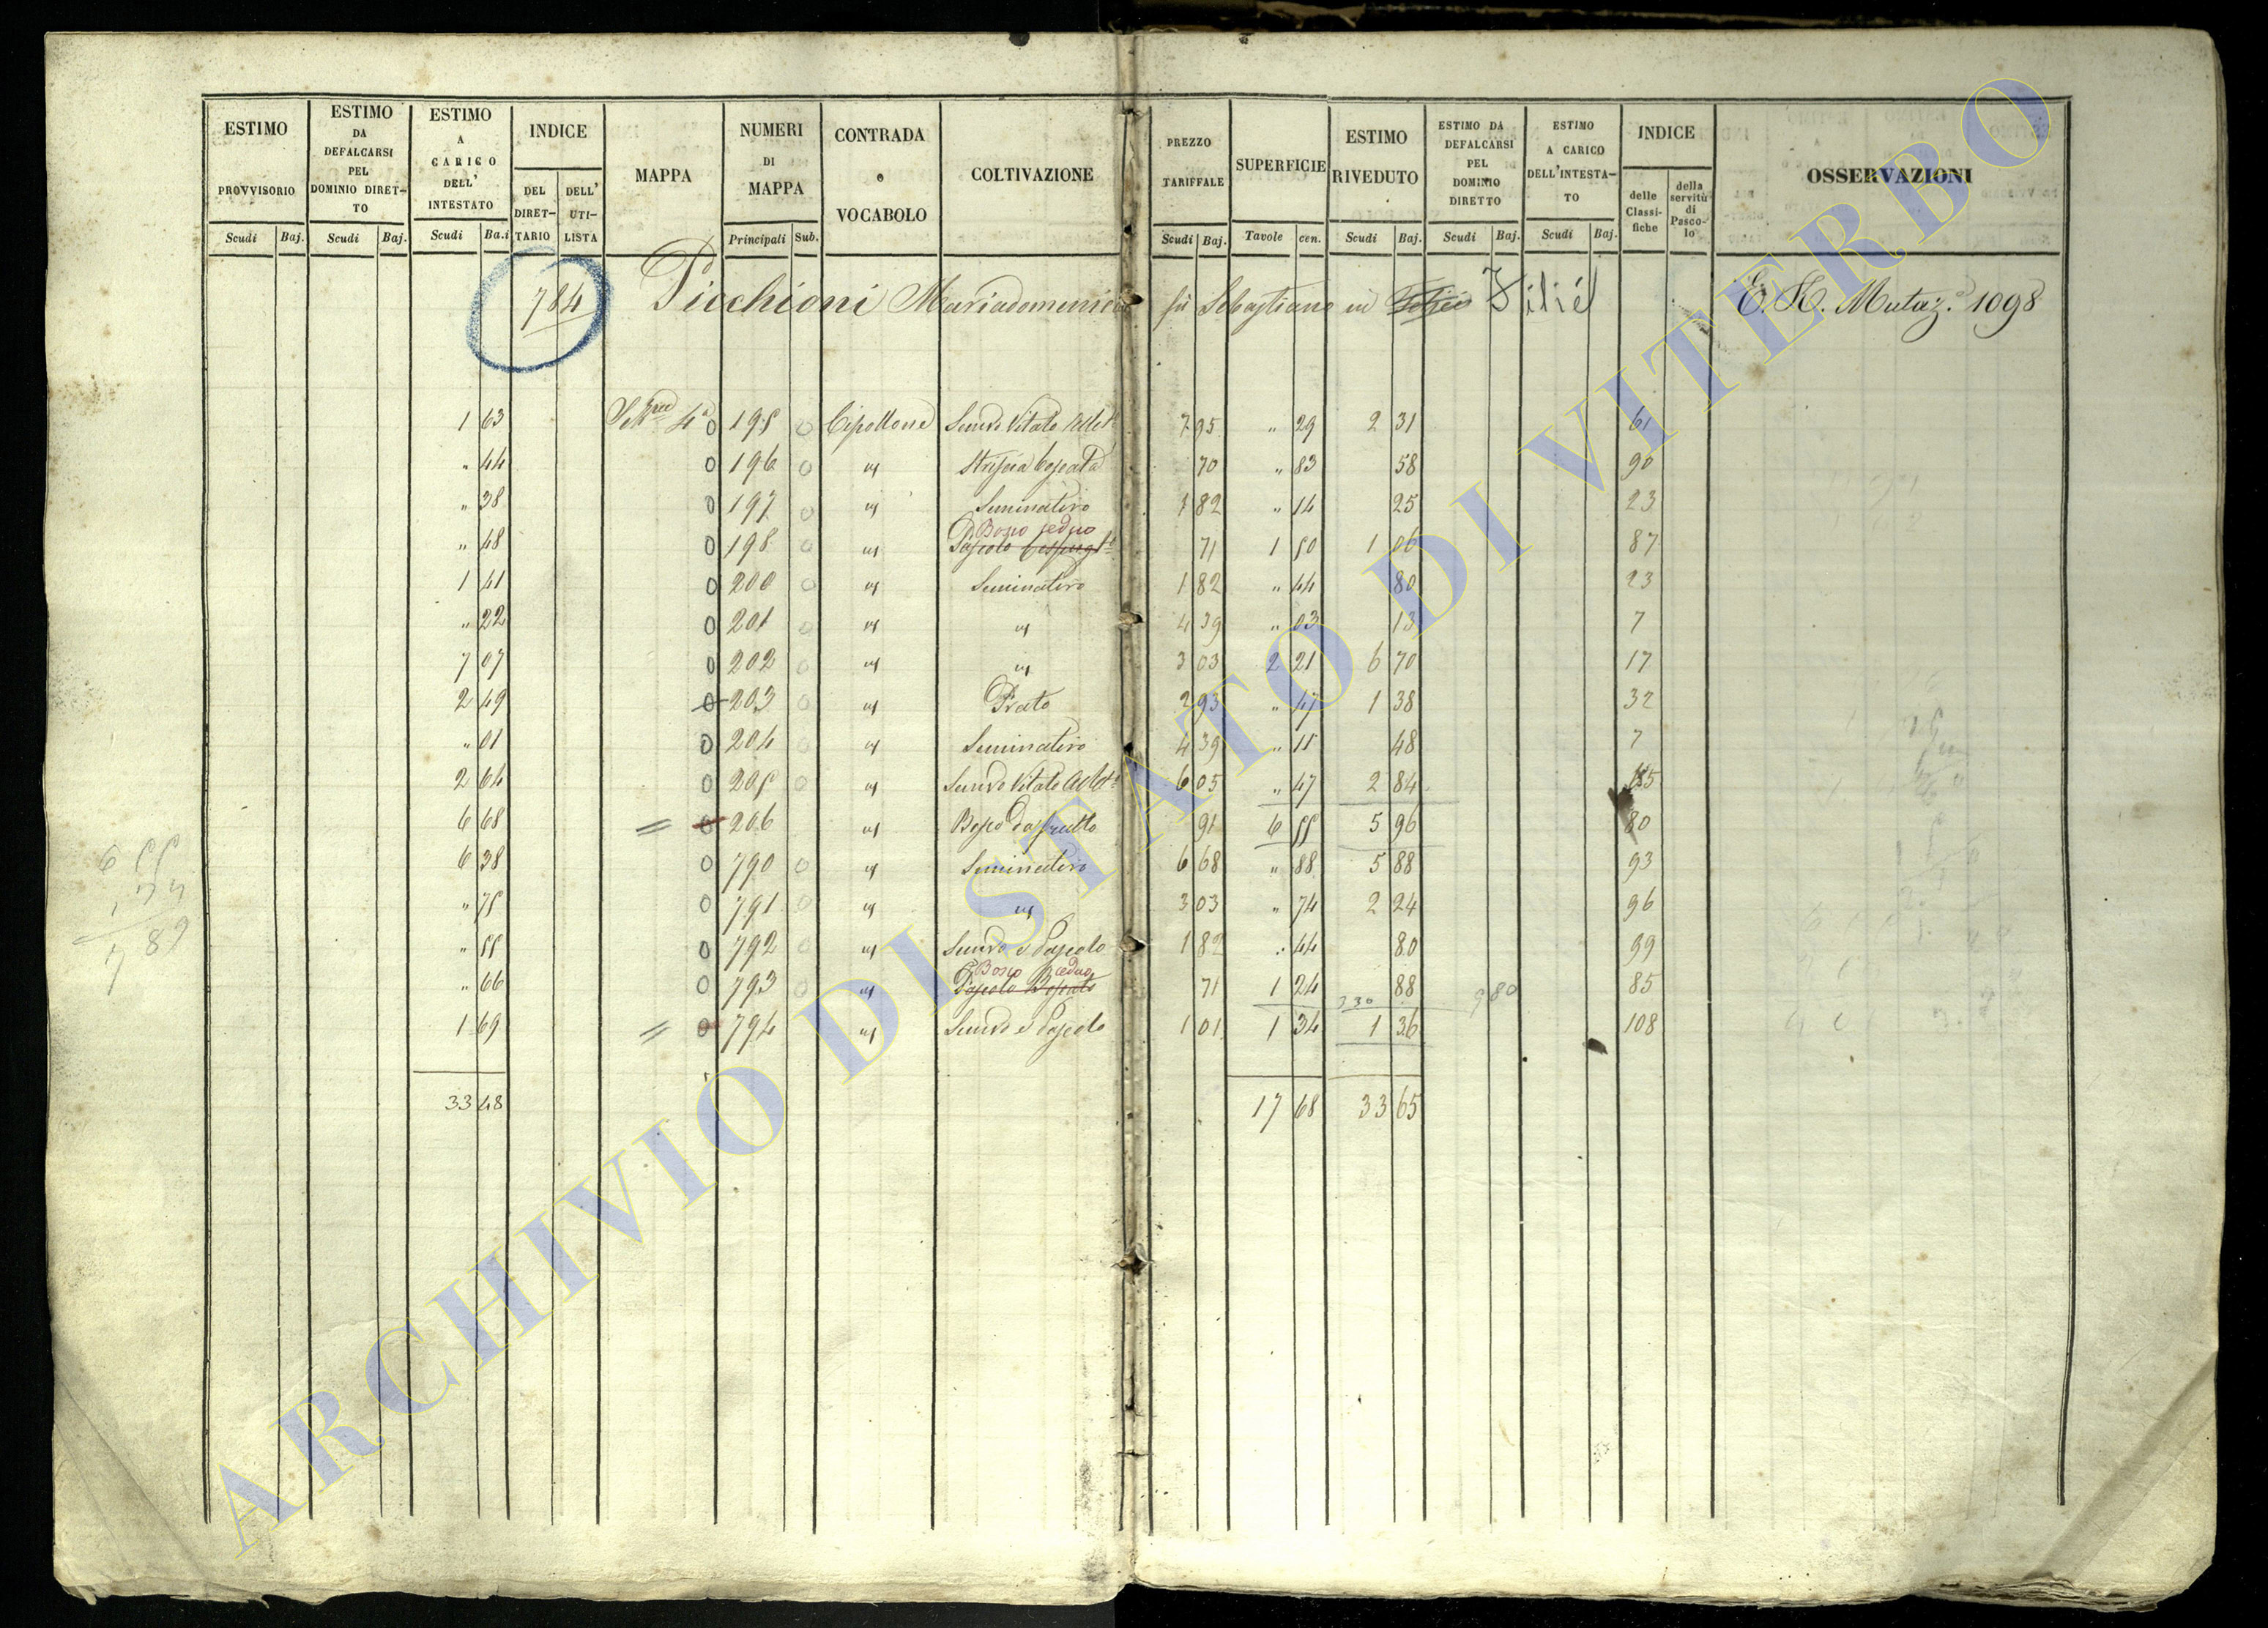 ESTIMO PROVVISORIO Scudi Baj.
ESTIMO DA DEFALCARSI PEL DOMINIO DIRET-TO Scudi Baj.
ESTIMO A CARICO DELL' INTESTATO Scudi Ba.i
INDICE DEL DIRET-TARIO DELL' UTI-LISTA
MAPPA
NUMERI DI MAPPA Principali Sub.
CONTRADA o VOCABOLO
COLTIVAZIONE
PREZZO TARIFFALE Scudi Baj.
SUPERFICIE Tavole cen.
ESTIMO RIVEDUTO Scudi Baj.
ESTIMO DA DEFALCARSI PEL DOMINIO DIRETTO Scudi Baj.
ESTIMO A CARICO DELL'INTESTA-TO Scudi Baj.
INDICE delle Classi-fiche della servitù di Pasco-lo
OSSERVAZIONI
784 Picchioni Mariadomenica fu Sebastiano in Filié E. H. Mutaz. 1098
1 63 4a 0 195 0 Cipollone Semvo Vitato 7 95 " 29 2 31 61
" 44 0 196 0 " striscia boscata 70 " 83 58 90
" 38 0 197 0 " Seminativo 1 82 " 14 25 23
Bosco ceduo
" 48 0 198 0 " Pascolo 71 1 50 1 06 87
1 41 0 200 0 " Seminativo 1 82 " 44 80 23
" 22 0 201 0 " " 4 39 " 03 13 7
7 07 0 202 0 " " 3 03 2 21 6 70 17
2 49 0 203 0 " Prato 2 93 " 47 1 38 32
" 01 0 204 0 " Seminativo 4 39 " 11 48 7
2 64 0 205 0 " Semvo Vitato 6 05 " 47 2 84
6 68 = 0 206 " Bosco da frutto 91 6 55 5 96 80
6 38 0 790 0 " Seminativo 6 68 " 88 5 88 93
" 75 0 791 0 " " 3 03 " 74 2 24 96
" 55 0 792 0 " Semvo e Pascolo 1 82 " 44 80 99
Bosco ceduo
" 66 0 793 0 " Pascolo Boscato 71 1 24 88 85
330 980
1 69 = 0 794 " Semvo e Pascolo 1 01 1 34 1 36 108
33 48 17 68 33 65
ARCHIVIO DI STATO DI VITERBO